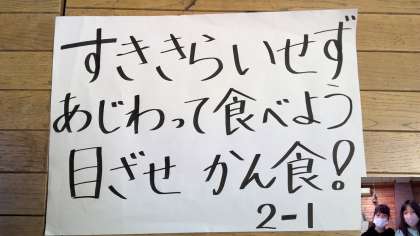 すききらいせず
あじわって食べよう
目ざせ かん食!
2-1